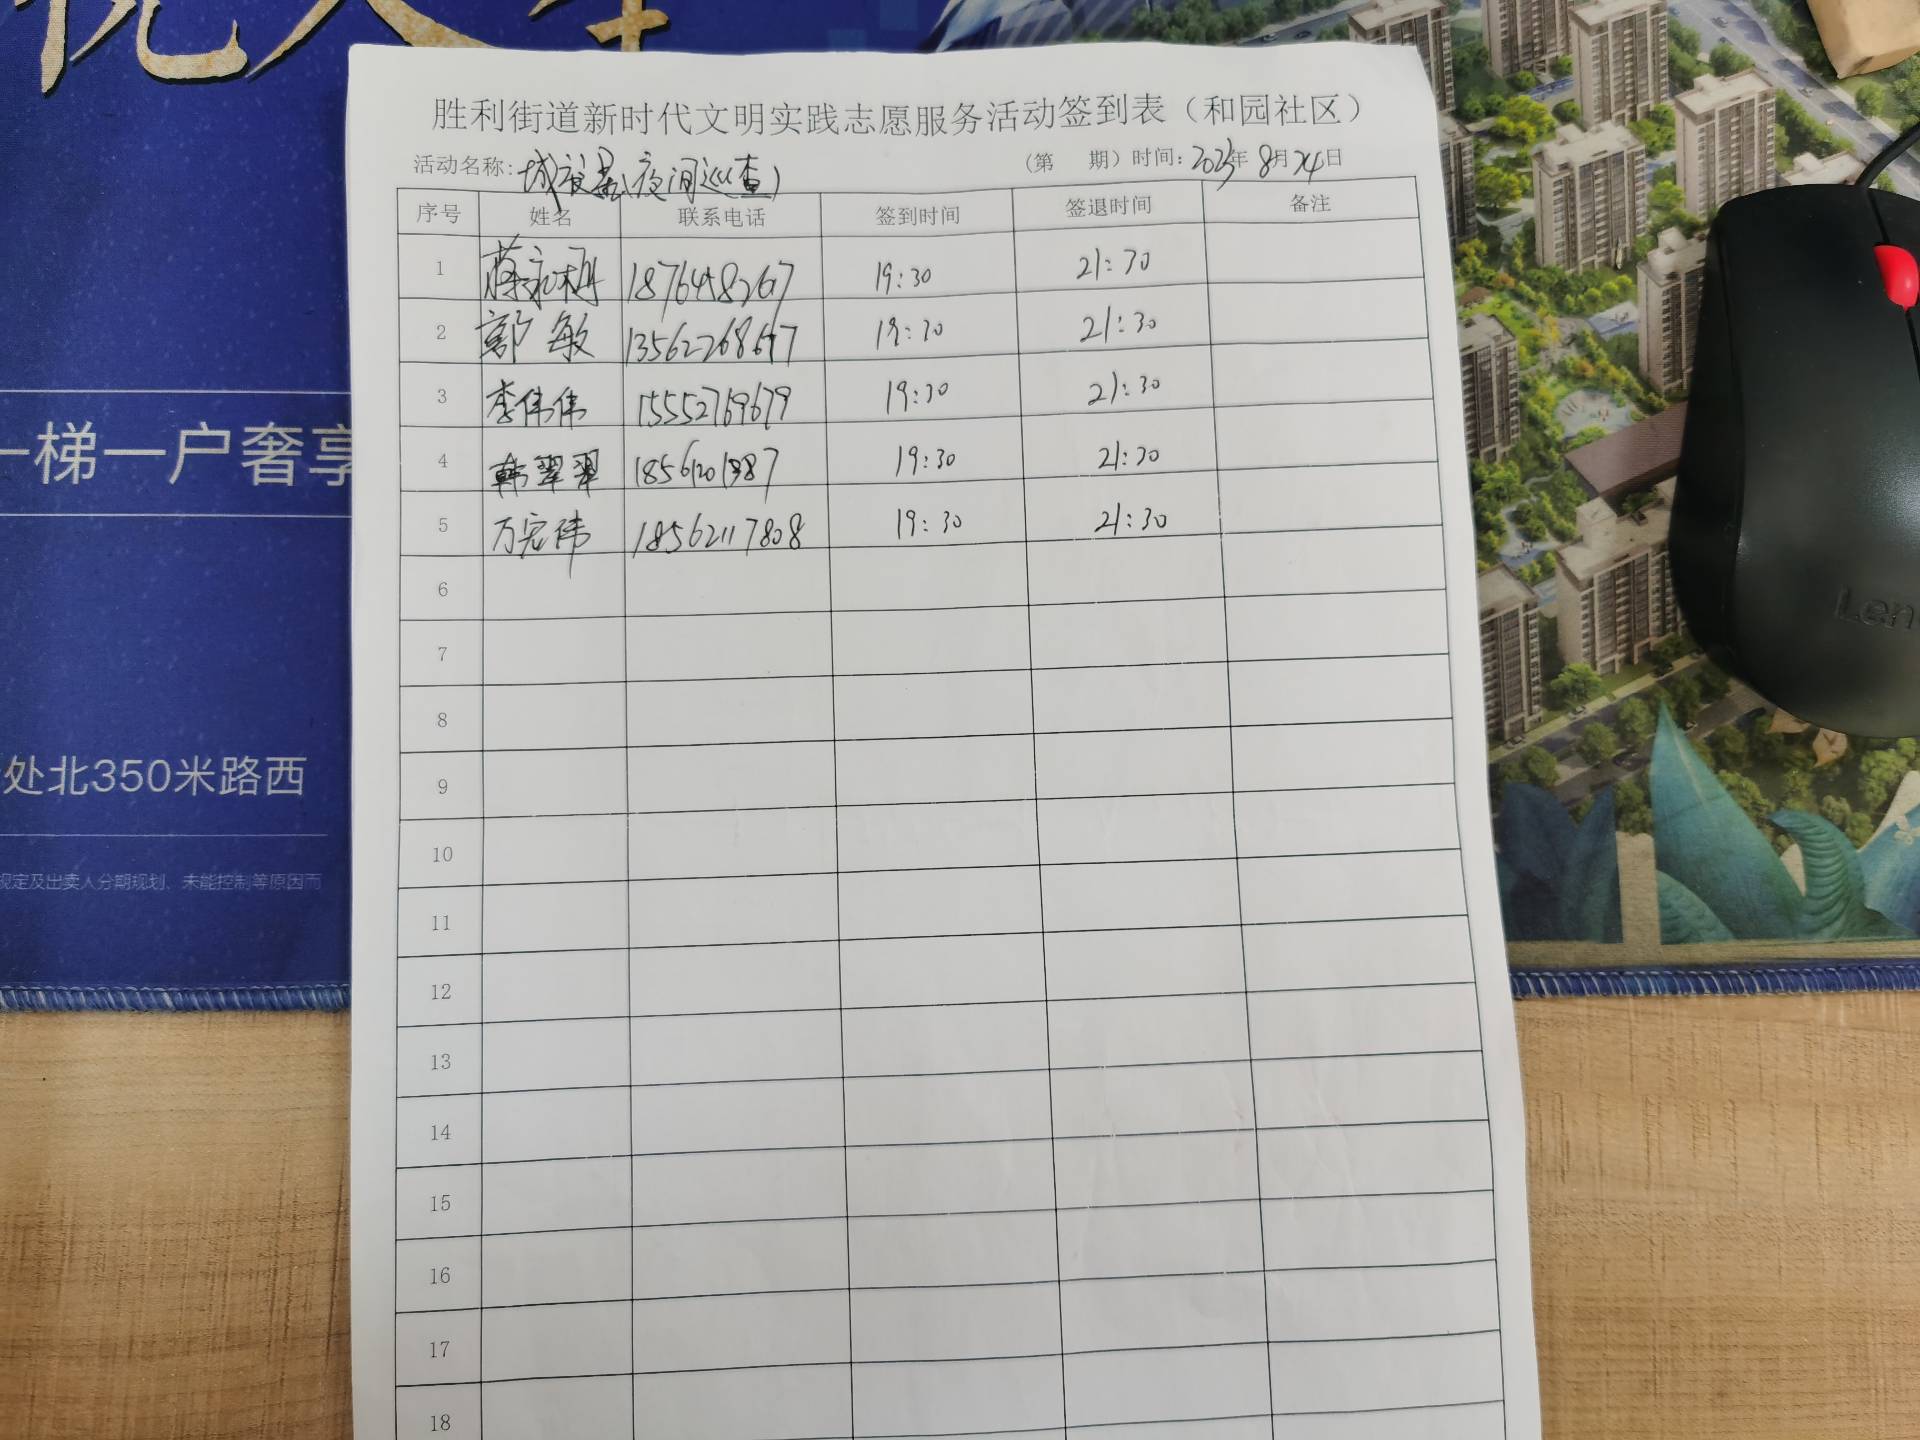 一梯一户奢享
处北350米路西
规定及出卖人分期规划、未能控制等原因而
胜利街道新时代文明实践志愿服务活动签到表（和园社区）
活动名称: 夜间巡查)
（第 期）时间: 2023年 8月24日
序号 姓名 联系电话 签到时间 签退时间 备注
1 19:30 21:30
2 郭敏 19:30 21:30
3 李伟伟 15552769679 19:30 21:30
4 韩翠翠 19:30 21:30
5 万宏伟 18562117808 19:30 21:30
6
7
8
9
10
11
12
13
14
15
16
17
18
Len